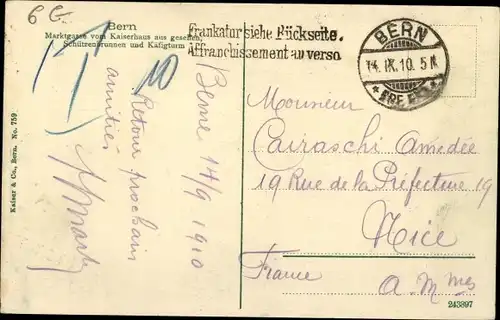 6 E
Bern
Marktgasse vom Kaiserhaus aus gesehen,
Schützenbrunnen und Käfigturm
Frankatur siehe Rückseite.
Affranchissement au verso
BERN
14. IX. 10. 5
T
10
Berne 14/9 1910
Retour prochain
amitiés
Monsieur
Cairaschi Amedée
19 Rue de la Préfecture 19
Nice
France
A. M mes
Kaiser & Co., Bern. No. 759
243397